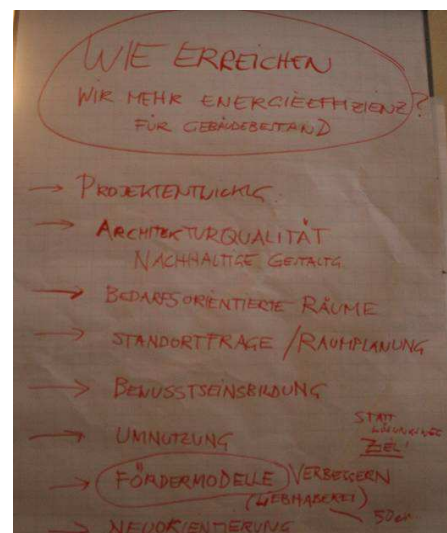 WIE ERREICHEN
WIR MEHR ENERGIEEFFIZIENZ?
FÜR GEBÄUDEBESTAND
→ PROJEKTENTWICKLG
→ ARCHITEKTURQUALITÄT
NACHHALTIGE GESTALTG.
→ BEDARFSORIENTIERTE RÄUME
→ STANDORTFRAGE / RAUMPLANUNG
→ BEWUSSTSEINSBILDUNG
→ UMNUTZUNG
STATT
ZIEL!
→ FÖRDERMODELLE VERBESSERN
(LIEBHABEREI)
50er
→ NEUORIENTIERUNG